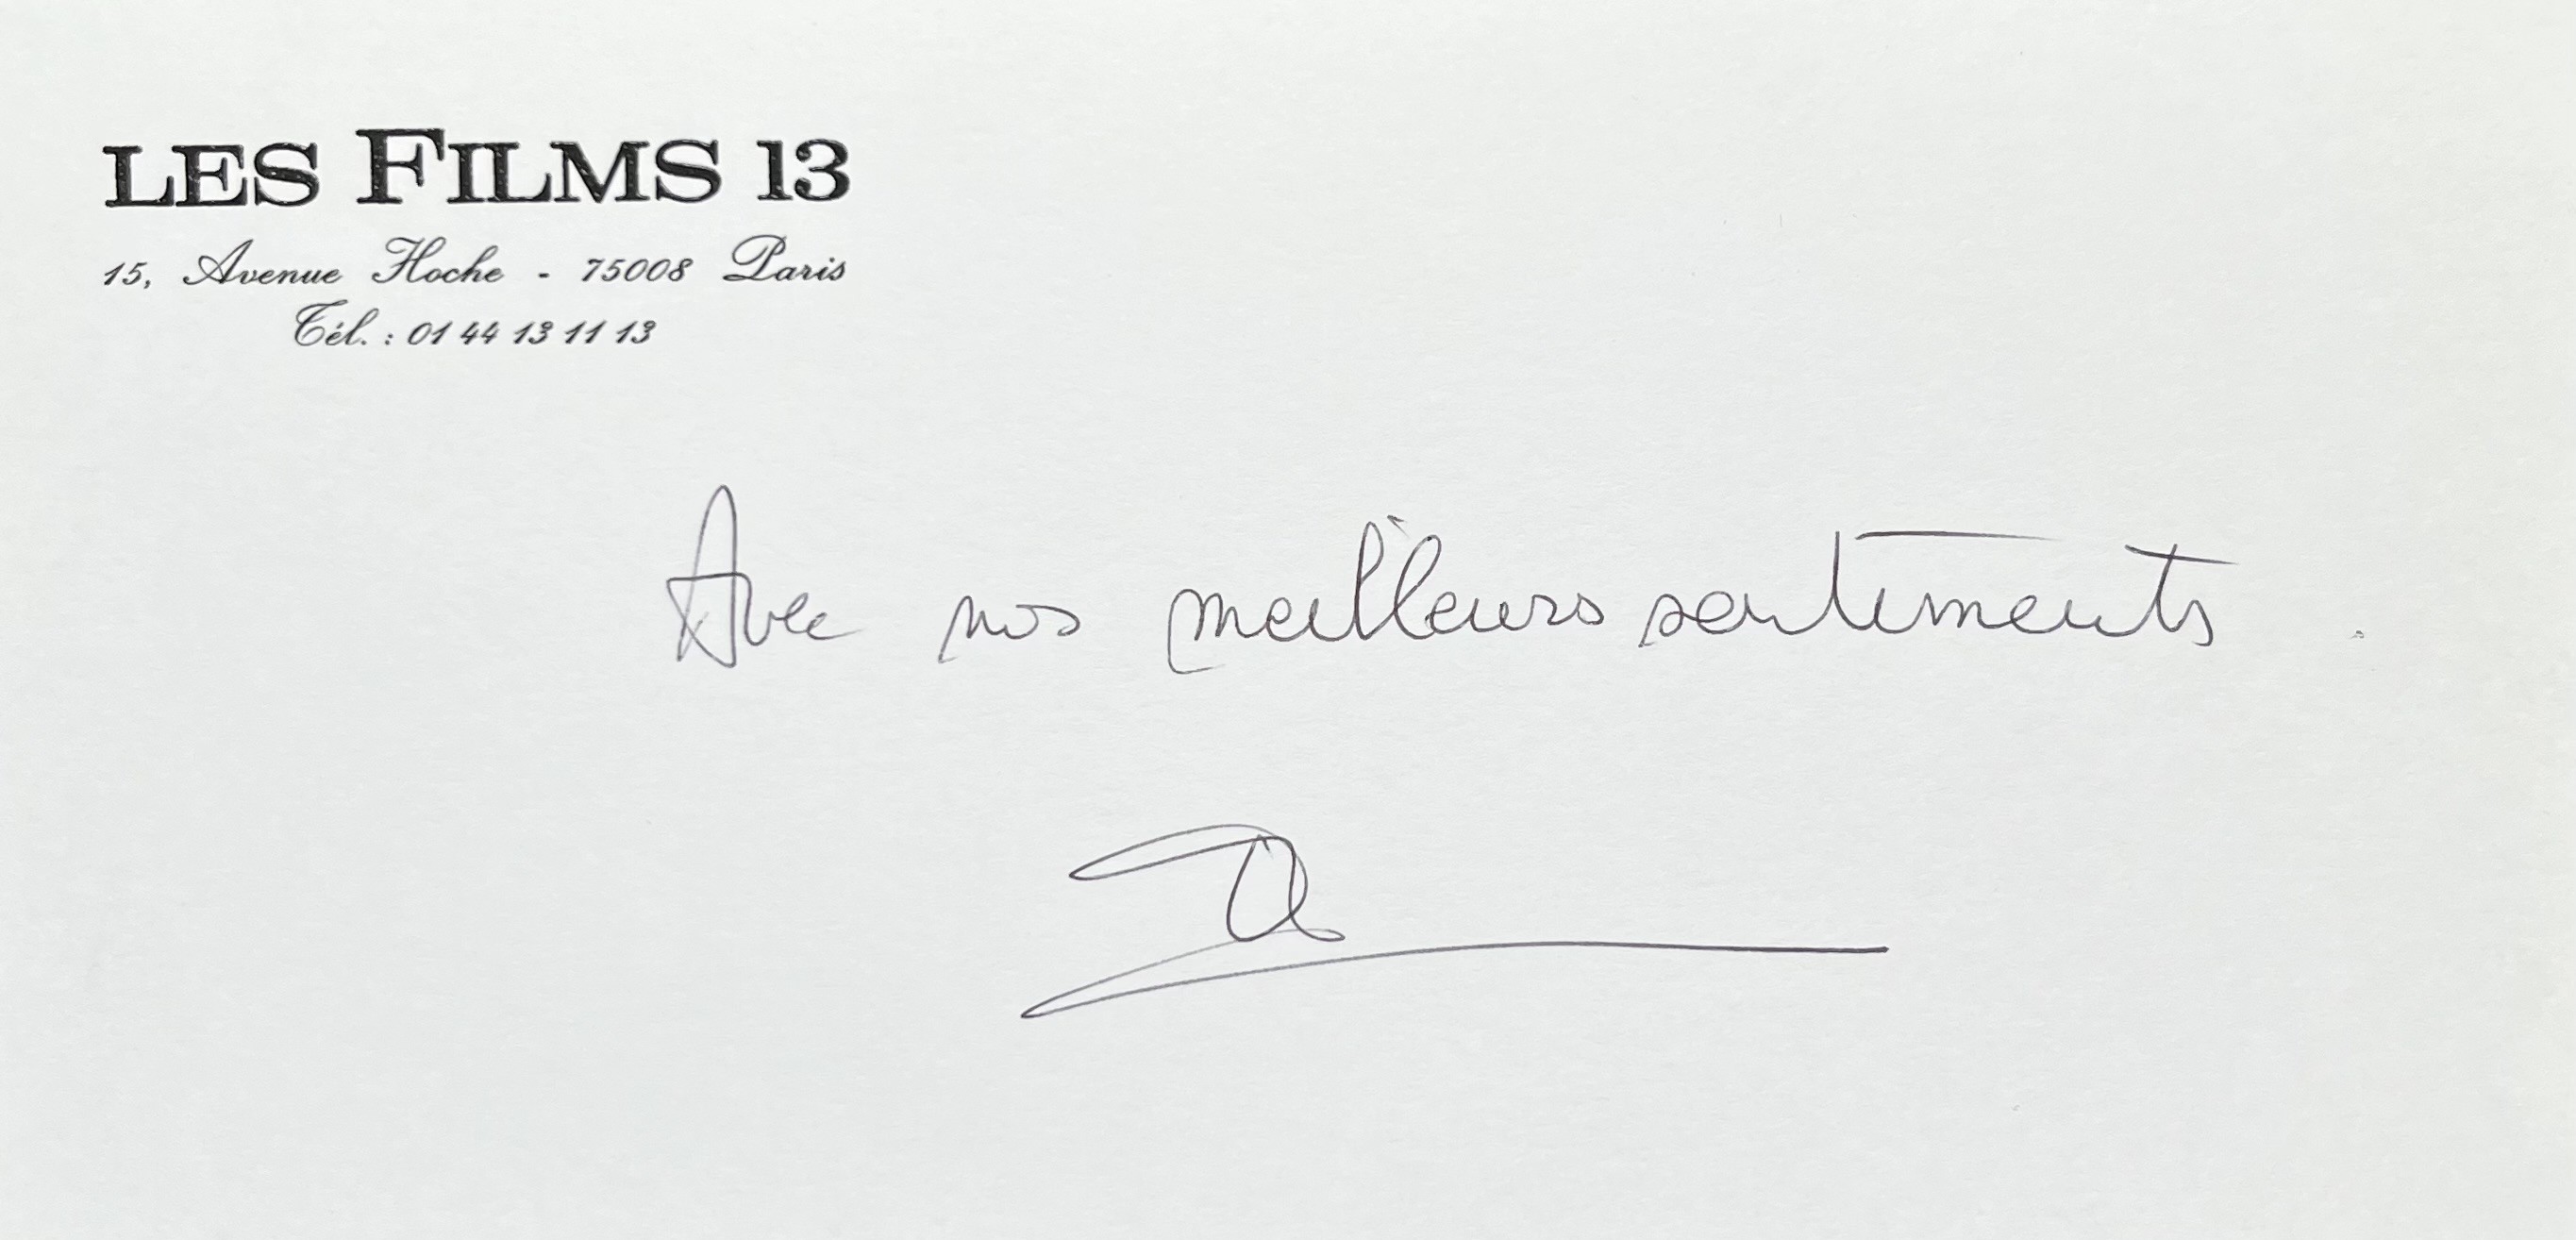 LES FILMS 13
15, Avenue Hoche - 75008 Paris
Tél. : 01 44 13 11 13
Avec nos meilleurs sentiments.